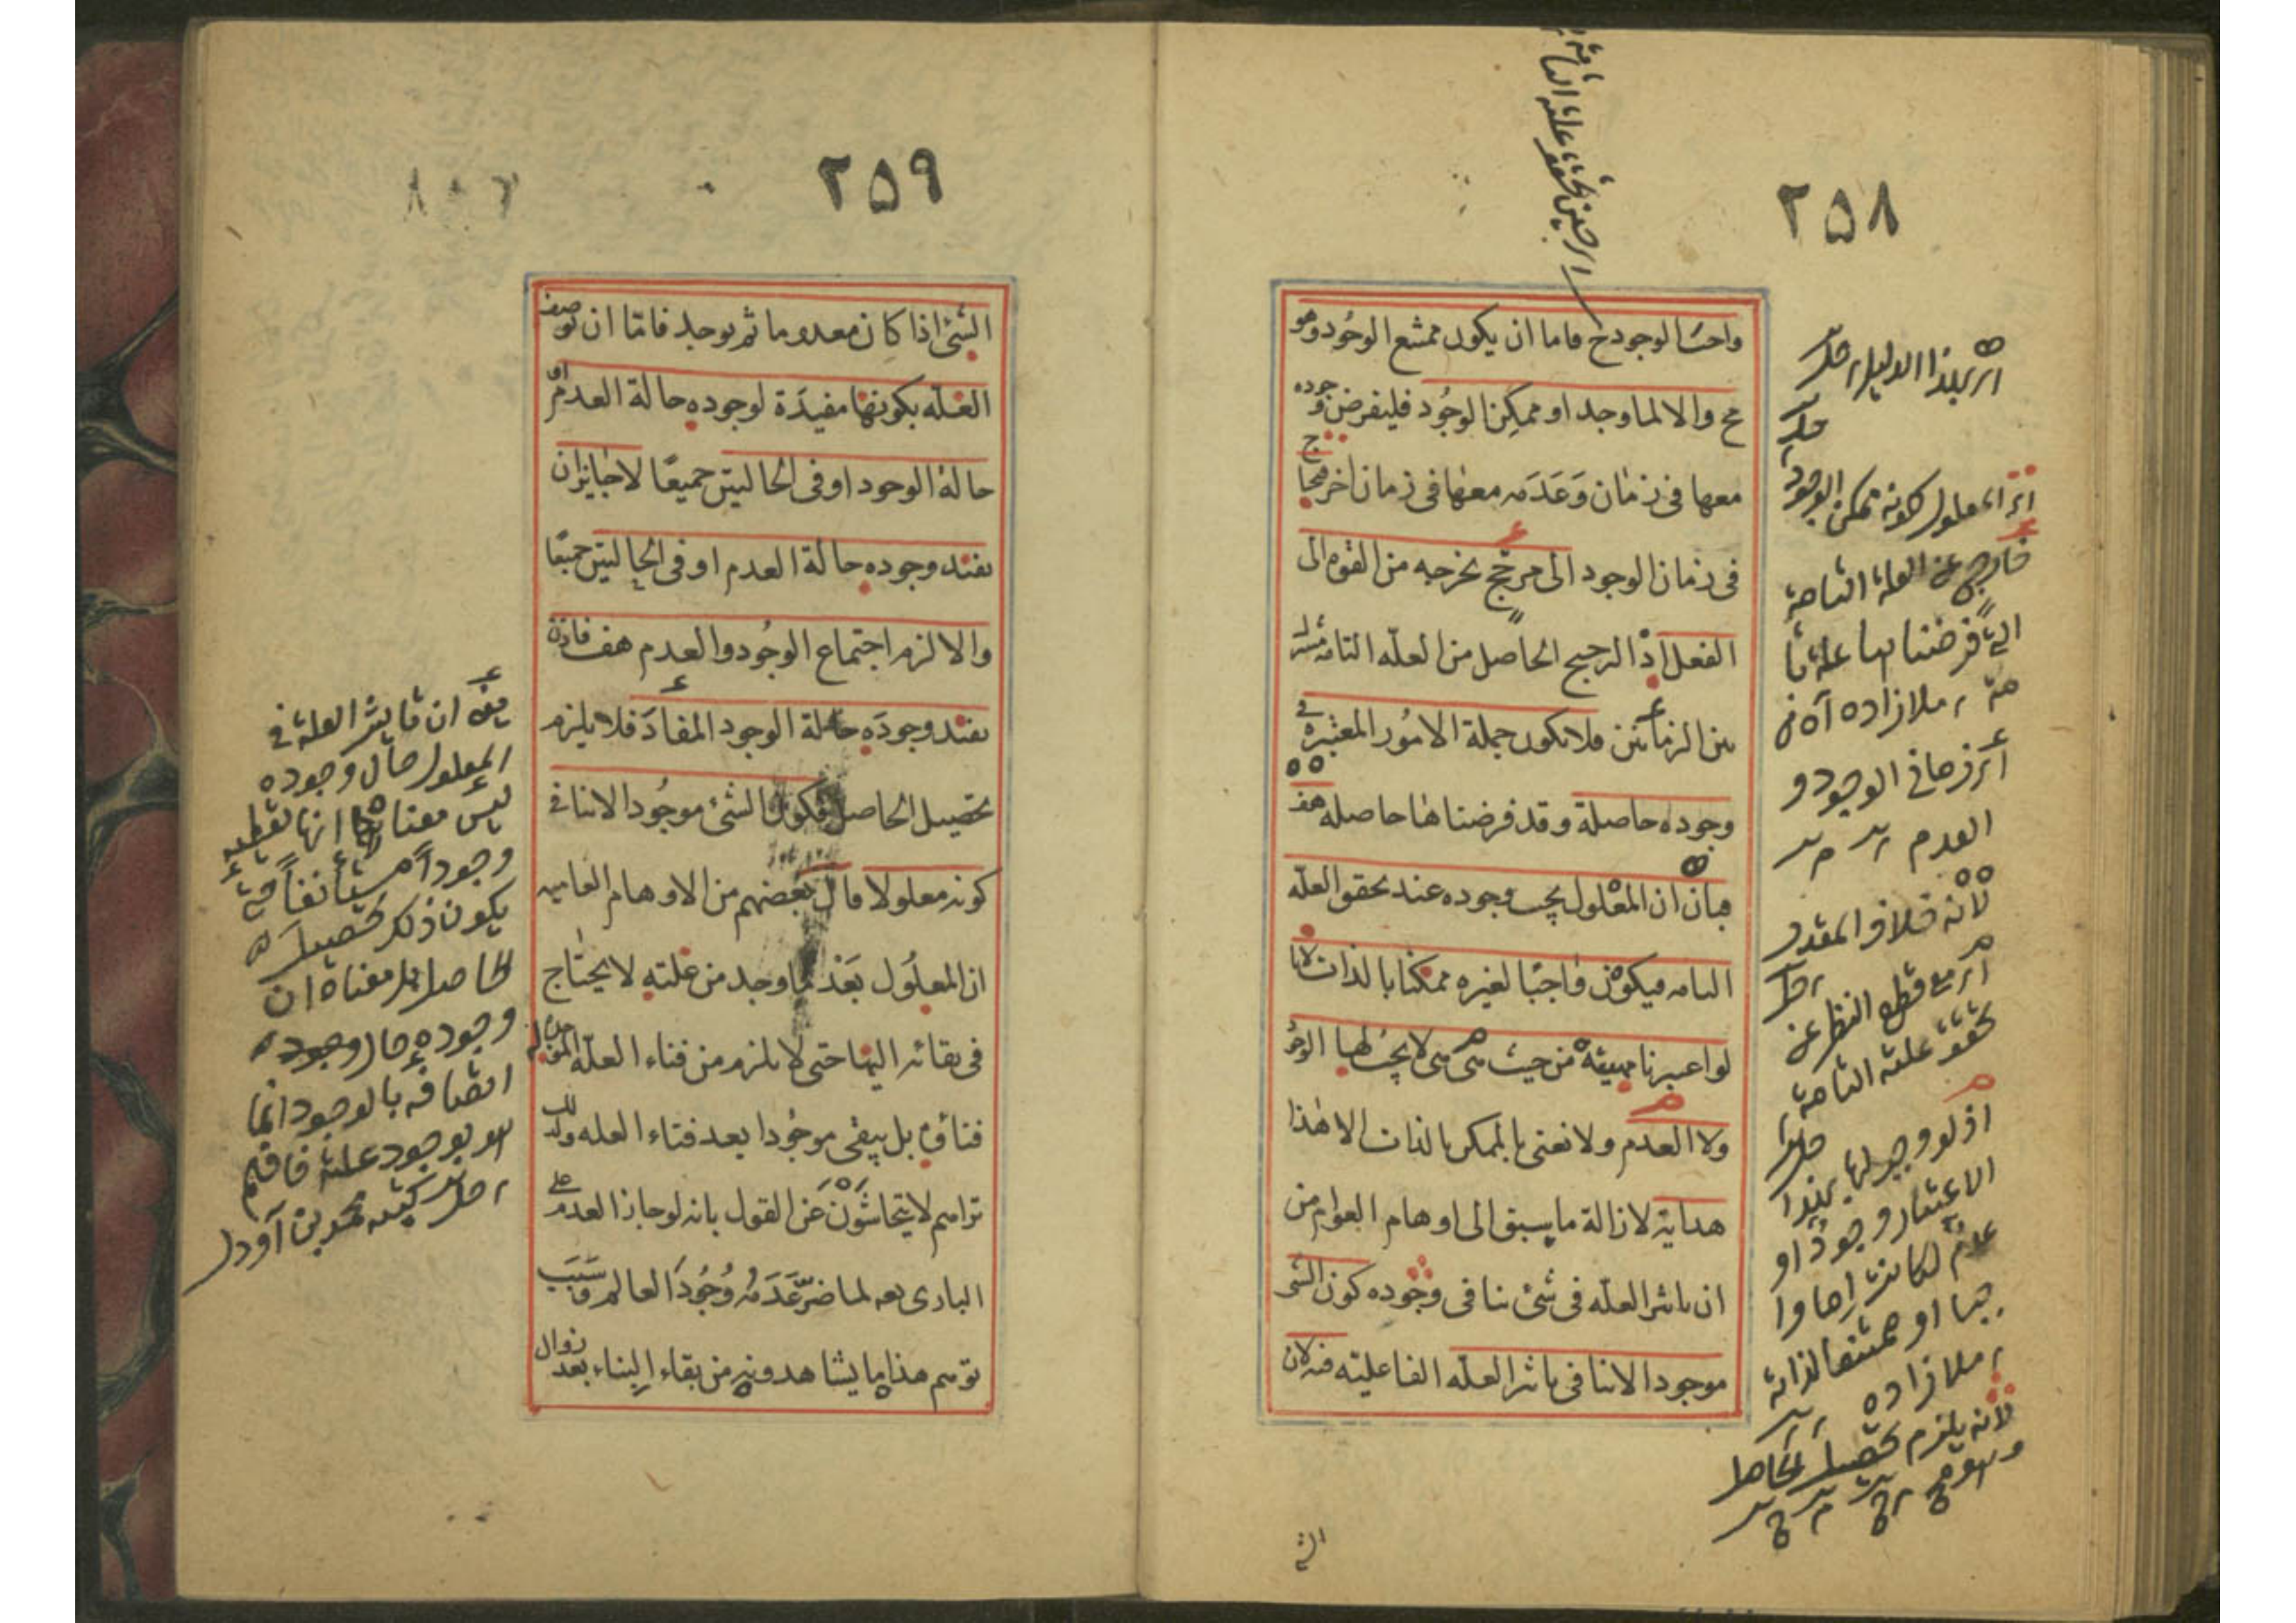 ٢٥٨
واجب الوجود ح فاما ان يكون ممتنع الوجود وهو
مح والا لما وجد او ممكن الوجود فليفرض وجوده
معها فى زمان وعدمه معها فى زمان اخر فيحتاج
فى زمان الوجود الى مرجح يخرجه من القوه الى
الفعل اذ الترجيح الحاصل من العلّه التامه مشترك
بين الزمانين فلا تكون جملة الامُور المعتبرة فى
وجوده حاصلة وقد فرضناها حاصله هف
فبان ان المعْلول يجب وجوده عند تحقق العلّه
التامه فيكون واجبًا لغيره ممكنا بالذات لانا
لو اعتبرنا مهيته من حيث هى هى لا يجبُ لها الوجود
ولا العدم ولا نعنى بالممكن بالذات الا هذا
هداية لازالة ما يسبق الى اوهام العوام من
ان تاثير العلّه فى شئ ينافى وجوده كون الشئ
موجودا لا ينافى تاثير العلّه الفاعليّه فيه لان
اى بهذا الدليل
اى المعلول كونه ممكن الوجود
خارج عن العلة التامة
التى فرضناها علة تا
مة ملازاده
اى زمانى الوجود و
العدم
لانه خلاف المقدر
اى مع قطع النظر عن
تحقق علته التامة
اذ لو وجب لها بهذا
الاعتبار وجودٌ او
عدمٌ لكانت اما وا
جبا او ممتنعا لذاته
ملازاده
لانه يلزم تحصيل الحاصل
وهو مح
اى حين تحقق علته التامة
الشئ
٢٥٩
الشئ اذا كان معدوما ثم يوجد فامّا ان توصف
العلّه بكونها مفيدَة لوجوده حالة العدم او
حالة الوجود او فى الحالتين جميعًا لا جايز ان
تفيد وجوده حالة العدم او فى الحالتين جميعًا
والا لزم اجتماع الوجُود والعدم هف فاذن
تفيد وجودَه حالة الوجود المفادَ فلا يلزم
تحصيل الحاصل فكون الشئ موجُودا لا ينافى
كونه معلولا قال بعضهم من الاوهام العاميه
ان المعلُول بعْد ما وجد من علته لا يحتاج
فى بقائه اليها حتى لا يلزم من فناء العلّه
فناؤه بل يبقى موجُودا بعد فناء العله ولذلك
تراهم لا يتحاشَوْنَ عَن القول بانه لو جاز العدم على
البارى تعه لما ضرّ عَدَمُه وُجُودَ العالم وسَبَب
توهم هذا ما يشاهدونه من بقاء البناء بعد زوال
يعنى ان تاثير العلة فى
المعلول حال وجوده
ليس معناه انها تعطيه
وجوداً مستأنفاً حتى
يكون ذلك تحصيل
الحاصل بل معناه ان
وجوده حال وجوده
اتصافه بالوجود انما
هو بوجود علته فافهم